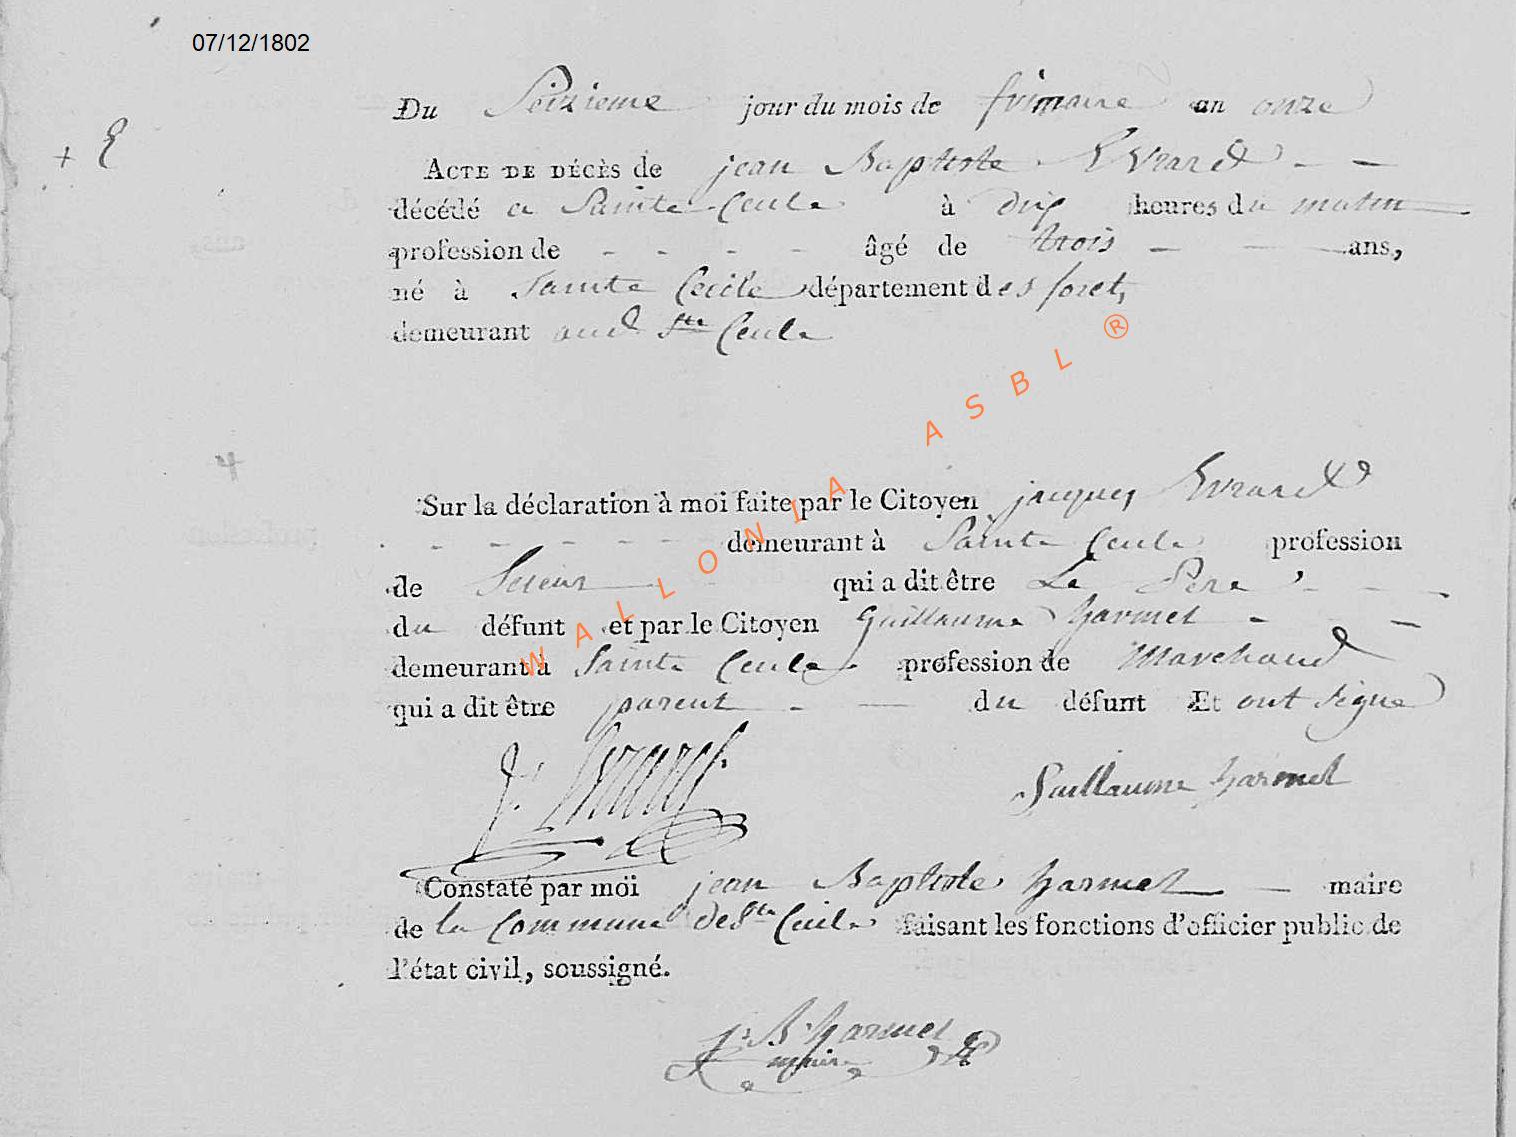 07/12/1802
Du Seizieme jour du mois de frimaire an onze
+ E
ACTE DE DÉCÈS de jean Baptiste Evrard - -
décédé a Sainte Cecile à dix heures du matin
profession de - - - - âgé de trois - - ans,
né à Sainte Cecile département des foret,
demeurant aud Ste Cecile
4
Sur la déclaration à moi faite par le Citoyen jacques Evrard
- - - - - - demeurant à Sainte Cecile profession
de qui a dit être Le Pere - - -
du défunt et par le Citoyen Guillaume harmel - -
demeurant à Sainte Cecile profession de Marchand
qui a dit être parent - - du défunt Et ont signe
J. Evrard
Guillaume harmel
Constaté par moi jean Baptiste harmel - maire
de la Commune de Ste Cecile faisant les fonctions d'officier public de
l'état civil, soussigné.
J. B. harmel
maire
WALLONIA ASBL ®